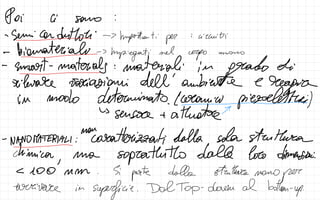 Poi ci sono:
- Semiconduttori → Importanti per i circuiti
- biomateriali → impiegati nel corpo umano
- smart-materials: materiali in grado di
rilevare variazioni dell'ambiente e reagire
in modo determinato (ceramici piezoelettrici)
↳ sensore + attuatore
- NANOMATERIALI: non caratterizzati dalla sola struttura
chimica, ma soprattutto dalla loro dimensione
< 100 nm. Si parte dalla struttura nano per
arrivare in superficie. Dal Top-down al bottom-up.